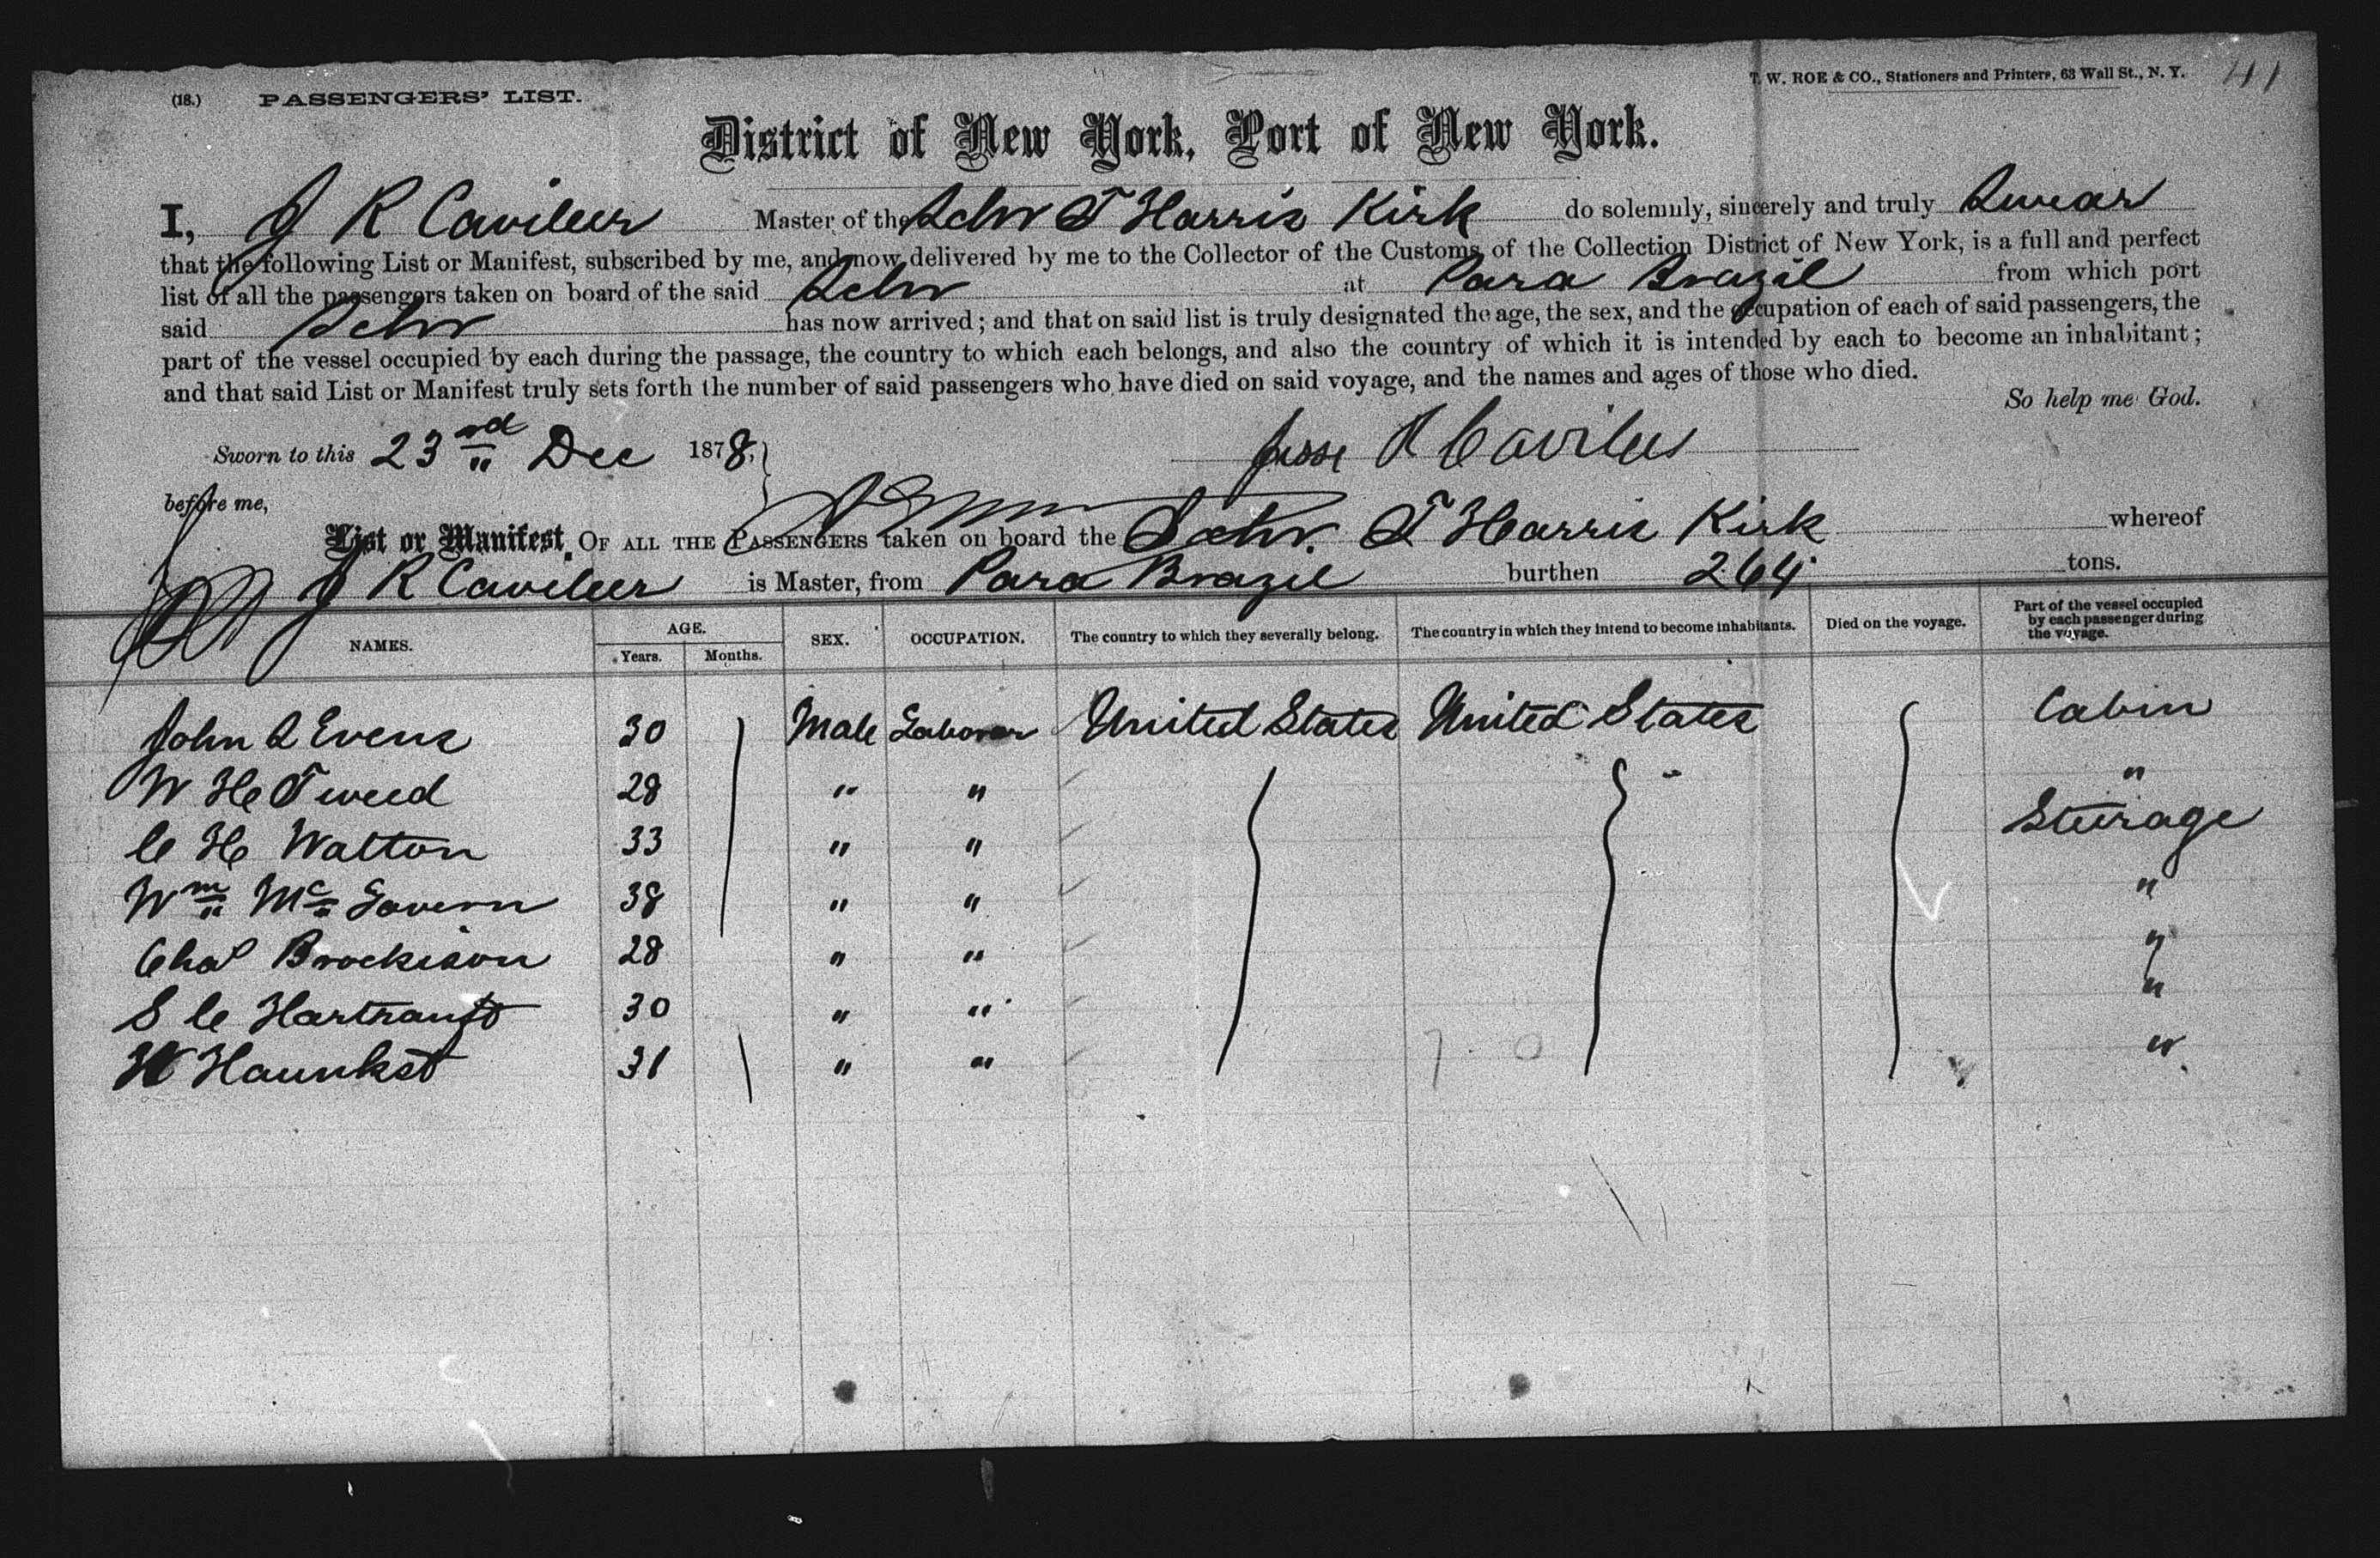 (18.) PASSENGERS' LIST.
T. W. ROE & CO., Stationers and Printers, 63 Wall St., N. Y. 41
District of New York, Port of New York.
I, J R Cavileer Master of the Schr T Harris Kirk do solemnly, sincerely and truly Swear
that the following List or Manifest, subscribed by me, and now delivered by me to the Collector of the Customs of the Collection District of New York, is a full and perfect
list of all the passengers taken on board of the said Schr at Para Brazil from which port
said Schr has now arrived; and that on said list is truly designated the age, the sex, and the occupation of each of said passengers, the
part of the vessel occupied by each during the passage, the country to which each belongs, and also the country of which it is intended by each to become an inhabitant;
and that said List or Manifest truly sets forth the number of said passengers who have died on said voyage, and the names and ages of those who died.
So help me God.
Sworn to this 23rd Dec 1878, Jesse R Cavileer
before me,
List or Manifest, OF ALL THE PASSENGERS taken on board the Schr. T Harris Kirk whereof
J R Cavileer is Master, from Para Brazil burthen 264 tons.
NAMES. AGE. Years. Months. SEX. OCCUPATION. The country to which they severally belong. The country in which they intend to become inhabitants. Died on the voyage. Part of the vessel occupied by each passenger during the voyage.
John S Evens 30 Male Laborer United States United States Cabin
W H Tweed 28 " " "
C H Walton 33 " " Steirage
Wm Mc Govern 38 " " "
Chas Brockison 28 " " "
S C Hartranft 30 " " "
W Haunkst 31 " " "